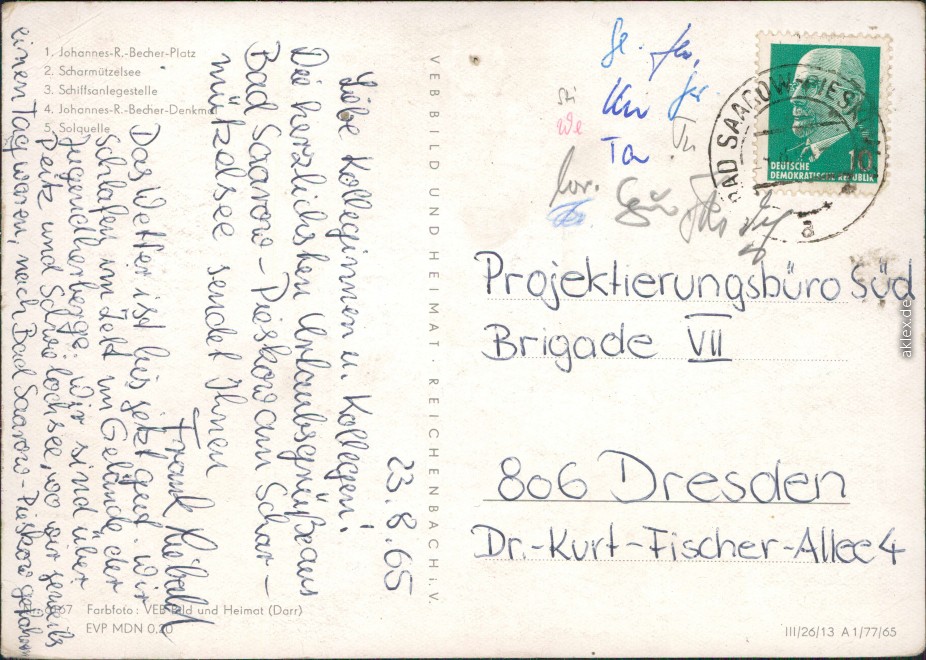 1. Johannes-R.-Becher-Platz
2. Scharmützelsee
3. Schiffsanlegestelle
4. Johannes-R.-Becher-Denkmal
5. Solquelle
23.8.65
Liebe Kolleginnen u. Kollegen!
Die herzlichsten Urlaubsgrüße aus
Bad Saarow-Pieskow am Schar-
mützelsee sendet Ihnen
Frank
Das Wetter ist bis jetzt gut. Wir
schlafen im Zelt im Gelände der
Jugendherberge. Wir sind über
Peitz und Schwielochsee, wo wir jeweils
einen Tag waren, nach Bad Saarow-Pieskow gefahren
67 Farbfoto: VEB Bild und Heimat (Darr)
EVP MDN 0,20
VEB BILD UND HEIMAT REICHENBACH i. V.
DEUTSCHE
DEMOKRATISCHE REPUBLIK
10
BAD SAAROW-PIESKOW
a
We
Ta
Projektierungsbüro Süd
Brigade VII
806 Dresden
Dr.-Kurt-Fischer-Allee 4
III/26/13 A 1/77/65
aklex.de